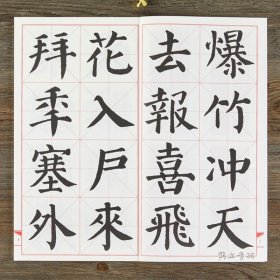 爆竹冲天
去報喜飛
花入戶來
拜年塞外